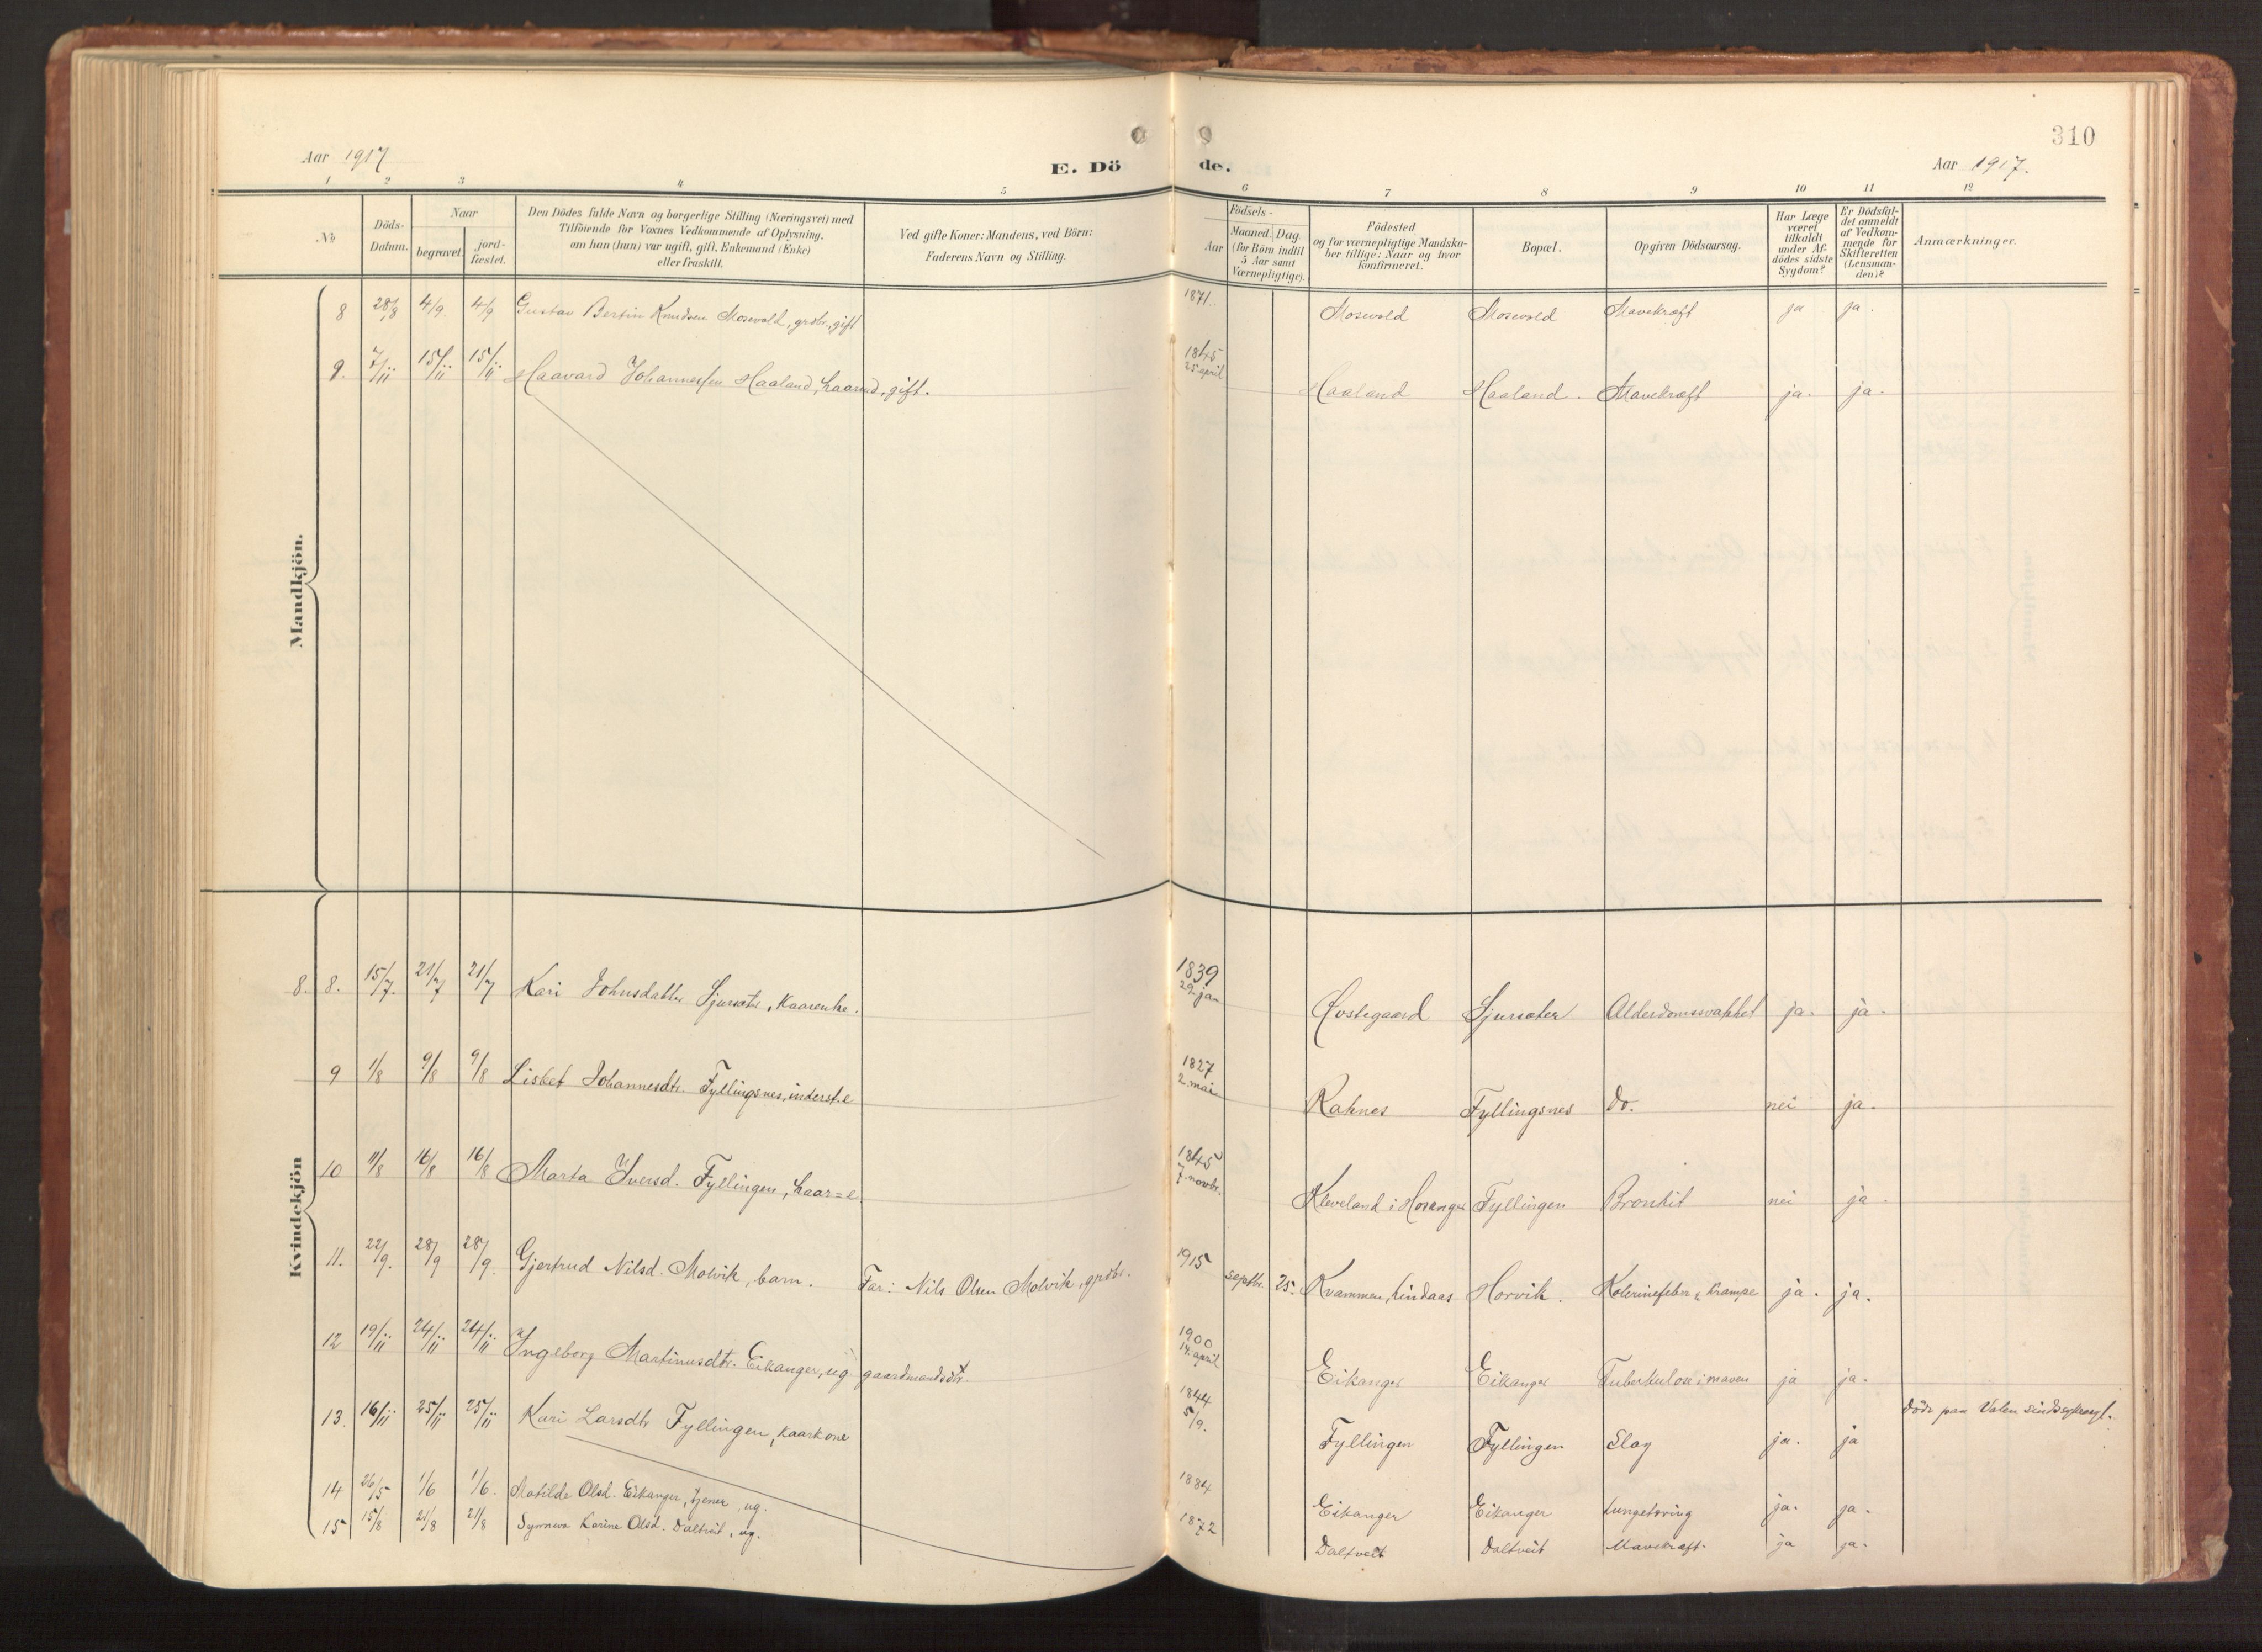 310
Aar 1917
E. Dö de.
Aar 1917.
1 2 3 4 5 6 7 8 9 10 11 12
No
Döds-Datum.
Naar
begravet
jord-fæstet.
Den Dödes fulde Navn og borgerlige Stilling (Næringsvei) med
Tilföiende for Voxnes Vedkommende af Oplysning,
om han (hun) var ugift, gift, Enkemand (Enke)
eller fraskilt.
Ved gifte Koner: Mandens, ved Börn:
Faderens Navn og Stilling.
Födsels-
Aar
Maaned. Dag.
(for Börn indtil
5 Aar samt
Værnepligtige).
Födested
og for værnepligtige Mandska-
ber tillige: Naar og hvor
konfirmeret.
Bopæl.
Opgiven Dödsaarsag.
Har Læge
været
tilkaldt
under Af-
dödes sidste
Sygdom?
Er Dödsfal-
det anmeldt
af Vedkom-
mende for
Skifteretten
(Lensman-
den)?
Anmærkninger.
Mandkjön.
8 28/8 4/9. 4/9 Gustav Bertin Knudsen Mosevold, grdbr., gift 1871. Mosevold Mosevold Mavekræft ja ja.
9. 7/11 15/11 15/11 Haavard Johannessen Haaland, kaarmd, gift. 1845 25 april Haaland Haaland. Mavekræft ja. ja.
Kvindekjön
8. 8. 15/7. 21/7 21/7 Kari Johnsdatter Sjursæter, Kaarenke. 1839 29 jan Øvstegaard Sjursæter Alderdomssvakhet ja. ja.
9 1/8 9/8 9/8 Lisbet Johannesdtr. Fyllingsnes, inderst.e 1827 2. mai Kahnes Fyllingsnes do. nei ja.
10 11/8 16/8 16/8 Marta Iversd. Fyllingen, kaar=e 1845 7. novbr. Kleveland i Hosanger Fyllingen Bronkit nei ja.
11. 22/9. 28/9 28/9. Gjertrud Nilsd. Molvik, barn. Far: Nils Olsen Molvik, grdbr. 1915 septbr. 25. Kvammen, Lindaas Horvik. Kolerinefeber & Krampe ja. ja.
12 19/11 24/11 24/11 Ingeborg Martinusdtr. Eikanger, ug gaardmandsdtr. 1900 14. april Eikanger Eikanger Tuberkulose i maven ja ja.
13. 16/11 25/11 25/11 Kari Larsdtr Fyllingen, kaarkone 1844 5/9. Fyllingen Fyllingen Slag ja. ja döde paa Valen sindssykeasyl.
14 26/5 1/6 1/6. Matilde Olsd. Eikanger, tjener, ug. 1884 Eikanger Eikanger Lungetæring ja. ja.
15 15/8 21/8 21/8 Synneva Karine Olsd. Daltveit, ug. 1872 Daltveit Daltveit Mavekræft. ja ja.